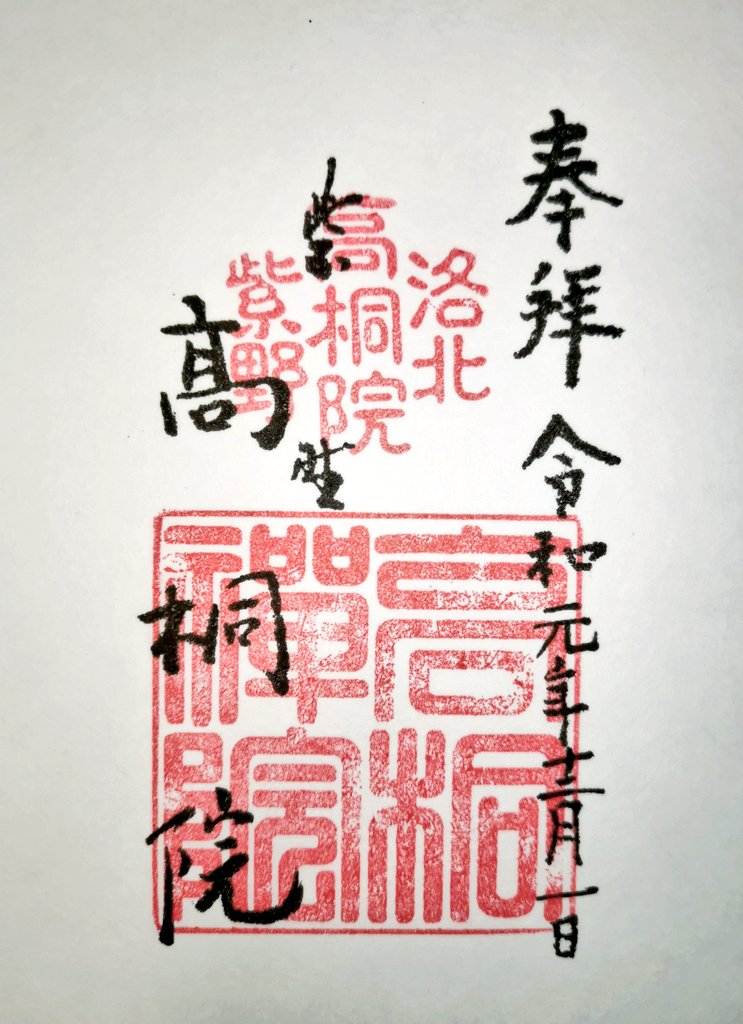 奉拝 令和元年十二月一日
紫野
髙桐院
洛北
高桐院
紫野
高桐
禪院